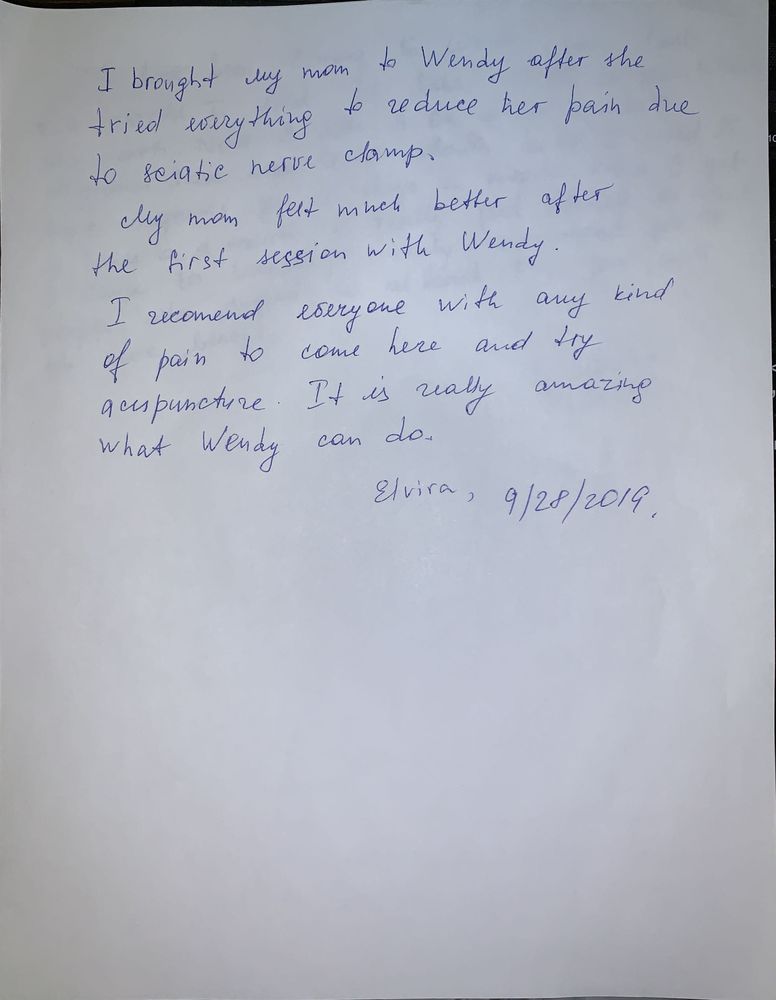 I brought my mom to Wendy after she
tried everything to reduce her pain due
to sciatic nerve clamp.
My mom felt much better after
the first session with Wendy.
I recomend everyone with any kind
of pain to come here and try
acupuncture. It is really amazing
what Wendy can do.
Elvira, 9/28/2019.